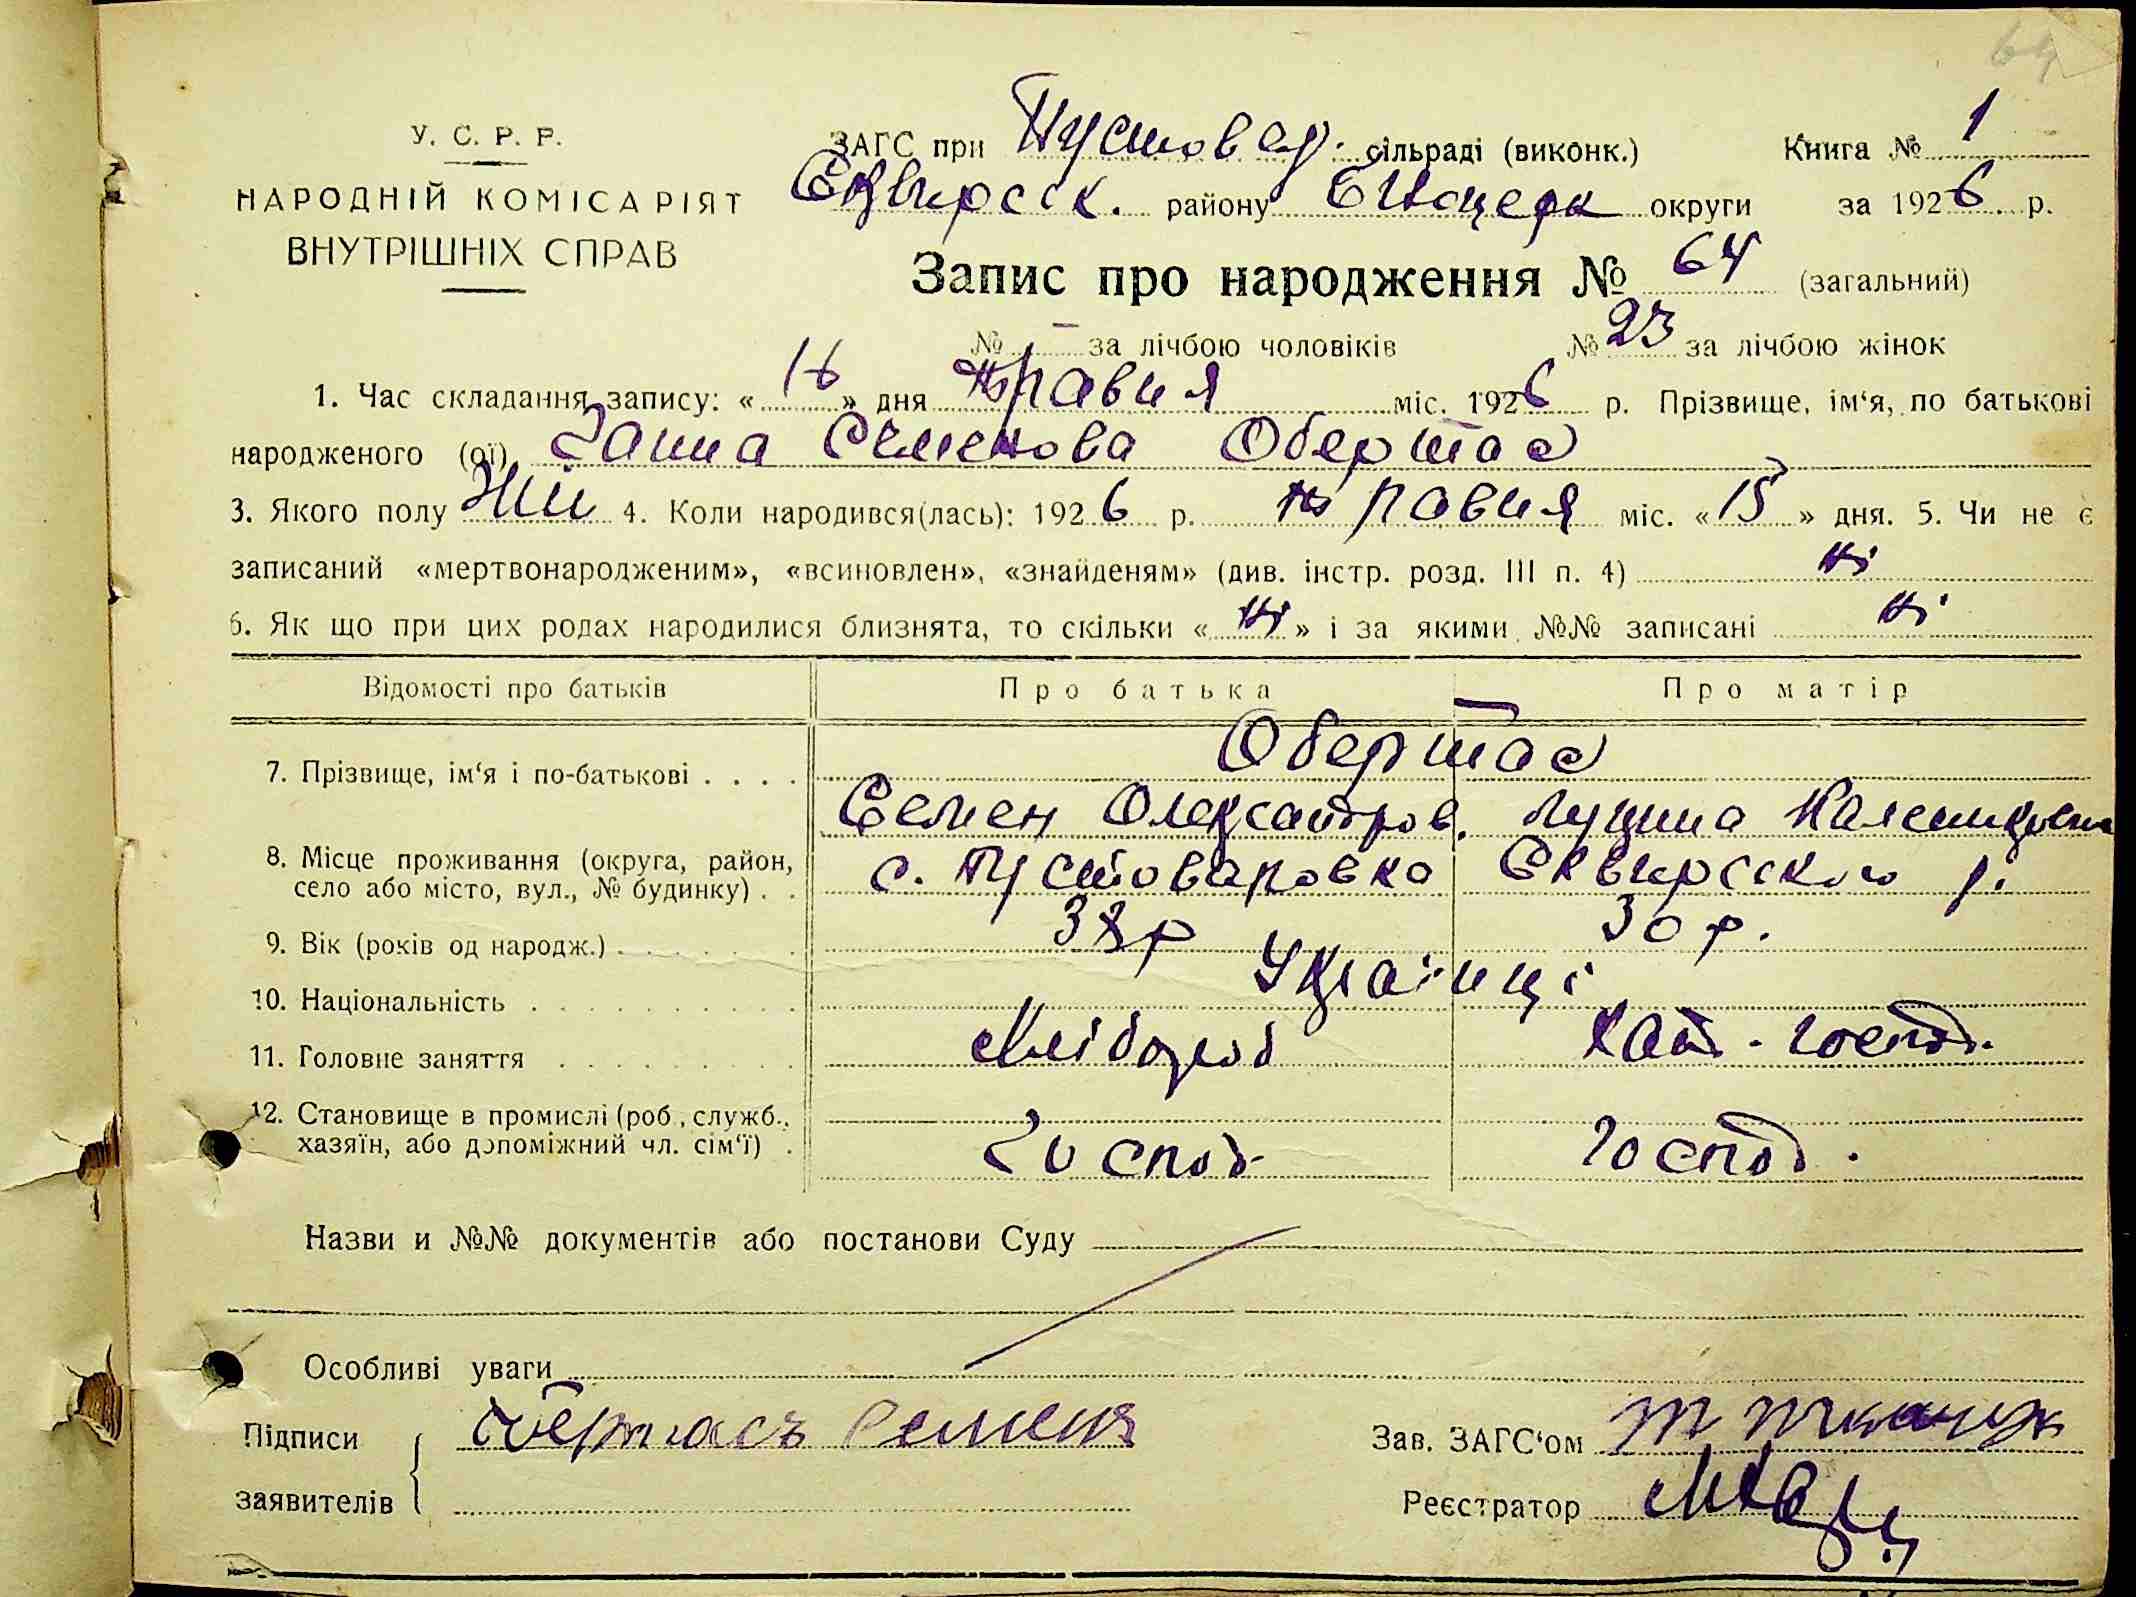 64
У. С. Р. Р.
НАРОДНІЙ КОМІСАРІЯТ
ВНУТРІШНІХ СПРАВ
ЗАГС при Пустовар. сільраді (виконк.) Книга № 1
Сквирськ. району Білоцерк округи за 1926 р.
Запис про народження № 64 (загальний)
№ – за лічбою чоловіків № 23 за лічбою жінок
1. Час складання запису: «16» дня травня міс. 1926 р. Прізвище, ім‘я, по батькові
народженого (ої) Ганна Семенова Обертас
3. Якого полу Жін 4. Коли народився(лась): 1926 р. травня міс. «15» дня. 5. Чи не є
записаний «мертвонародженим», «всиновлен», «знайденям» (див. інстр. розд. III п. 4) ні
6. Як що при цих родах народилися близнята, то скільки «ні» і за якими №№ записані ні
Відомості про батьків Про батька Про матір
7. Прізвище, ім‘я і по-батькові . . . . Обертас
Семен Олександров. Лукина
8. Місце проживання (округа, район,
село або місто, вул., № будинку) . . с. Пустоваровка Сквирського р.
9. Вік (років од народж.) 38 р 30 р.
10. Національність Українці
11. Головне заняття Хлібороб Хат. господ.
12. Становище в промислі (роб., служб.,
хазяїн, або допоміжний чл. сім‘ї) . Господ. Господ.
Назви и №№ документів або постанови Суду
Особливі уваги
Підписи Обертасъ Семенъ Зав. ЗАГС‘ом
заявителів Реєстратор